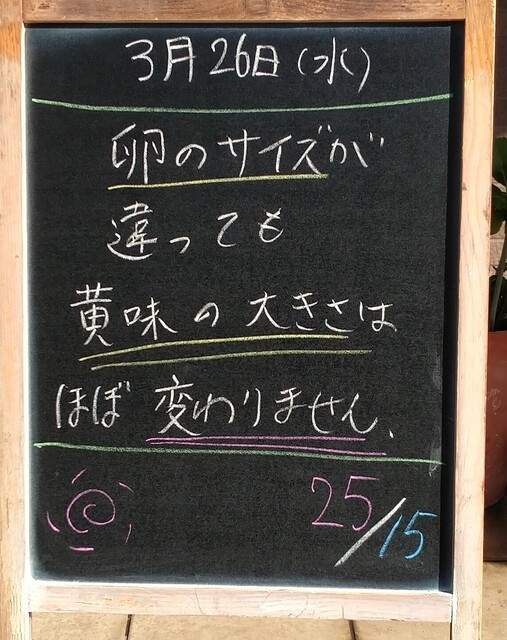 3月26日(水)
卵のサイズが
違っても
黄味の大きさは
ほぼ変わりません、
25/15